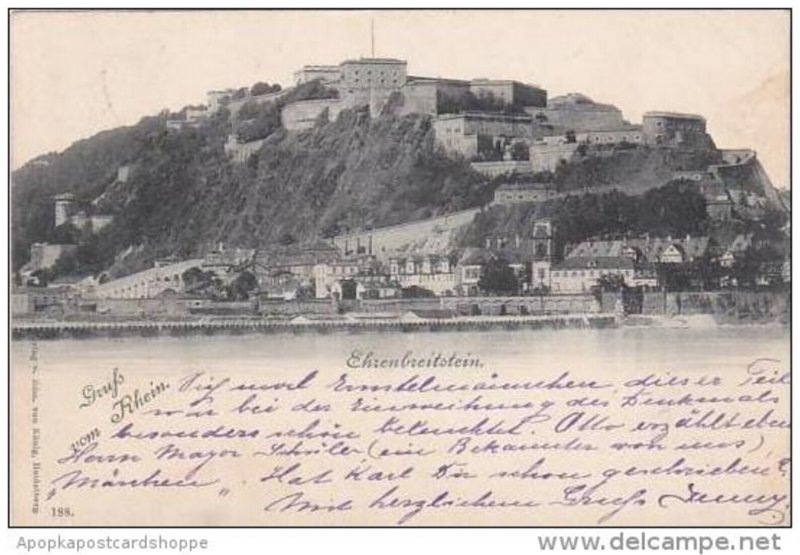 Ehrenbreitstein.
Gruß
vom Rhein.
Sig mal Ernstelmännchen, dieser Teil
war bei der Einweihung des Denkmals
besonders schön beleuchtet. Otto erzählt eben
Herrn Mayor Schröler (ein Bekannter von uns)
"Märchen". Hat Karl Dir schon geschrieben?
Mit herzlichem Gruß Jenny.
Verlag v. Edm. von König, Heidelberg
188.
Apopkapostcardshoppe
© www.delcampe.net